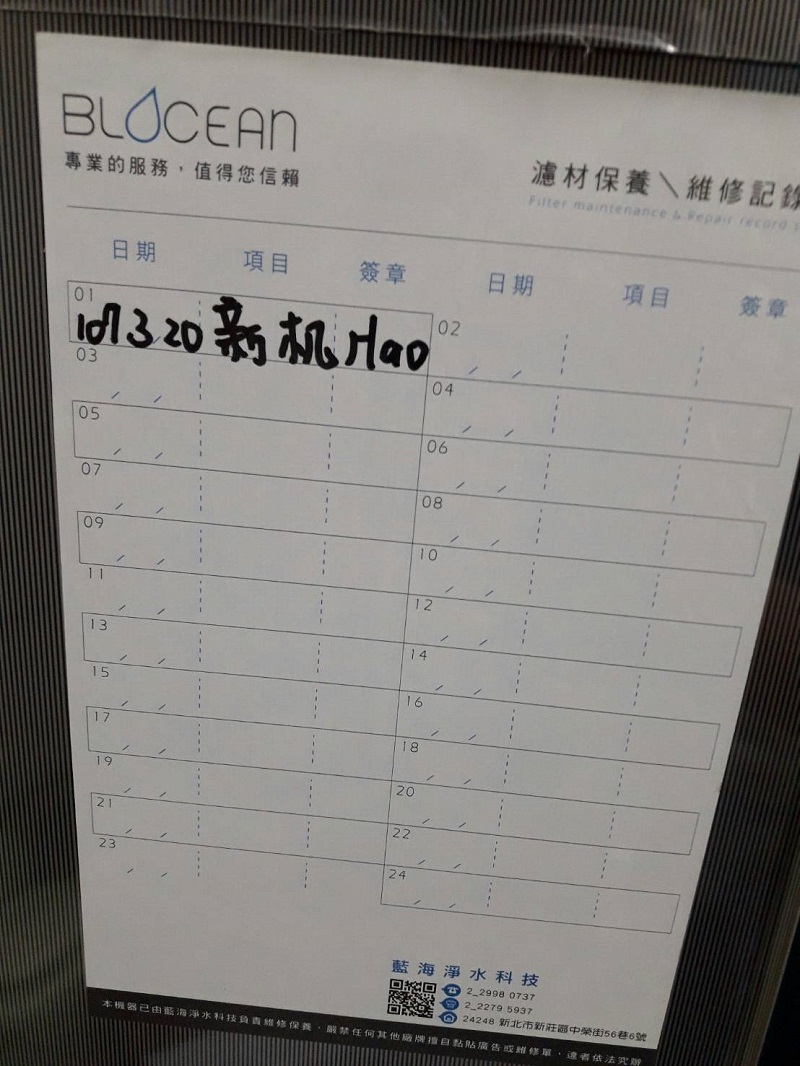 BLOCEAN
專業的服務，值得您信賴
濾材保養＼維修記錄
Filter maintenance & Repair record
日期 項目 簽章 日期 項目 簽章
01 107 3 20 新机 Hao
02 / /
03 / /
04 / /
05 / /
06 / /
07 / /
08 / /
09 / /
10 / /
11 / /
12 / /
13 / /
14 / /
15 / /
16 / /
17 / /
18 / /
19 / /
20 / /
21 / /
22 / /
23 / /
24 / /
藍海淨水科技
2_2998 0737
2_2279 5937
24248 新北市新莊區中榮街56巷6號
本機器已由藍海淨水科技負責維修保養，嚴禁任何其他廠牌擅自黏貼廣告或維修單，違者依法究辦